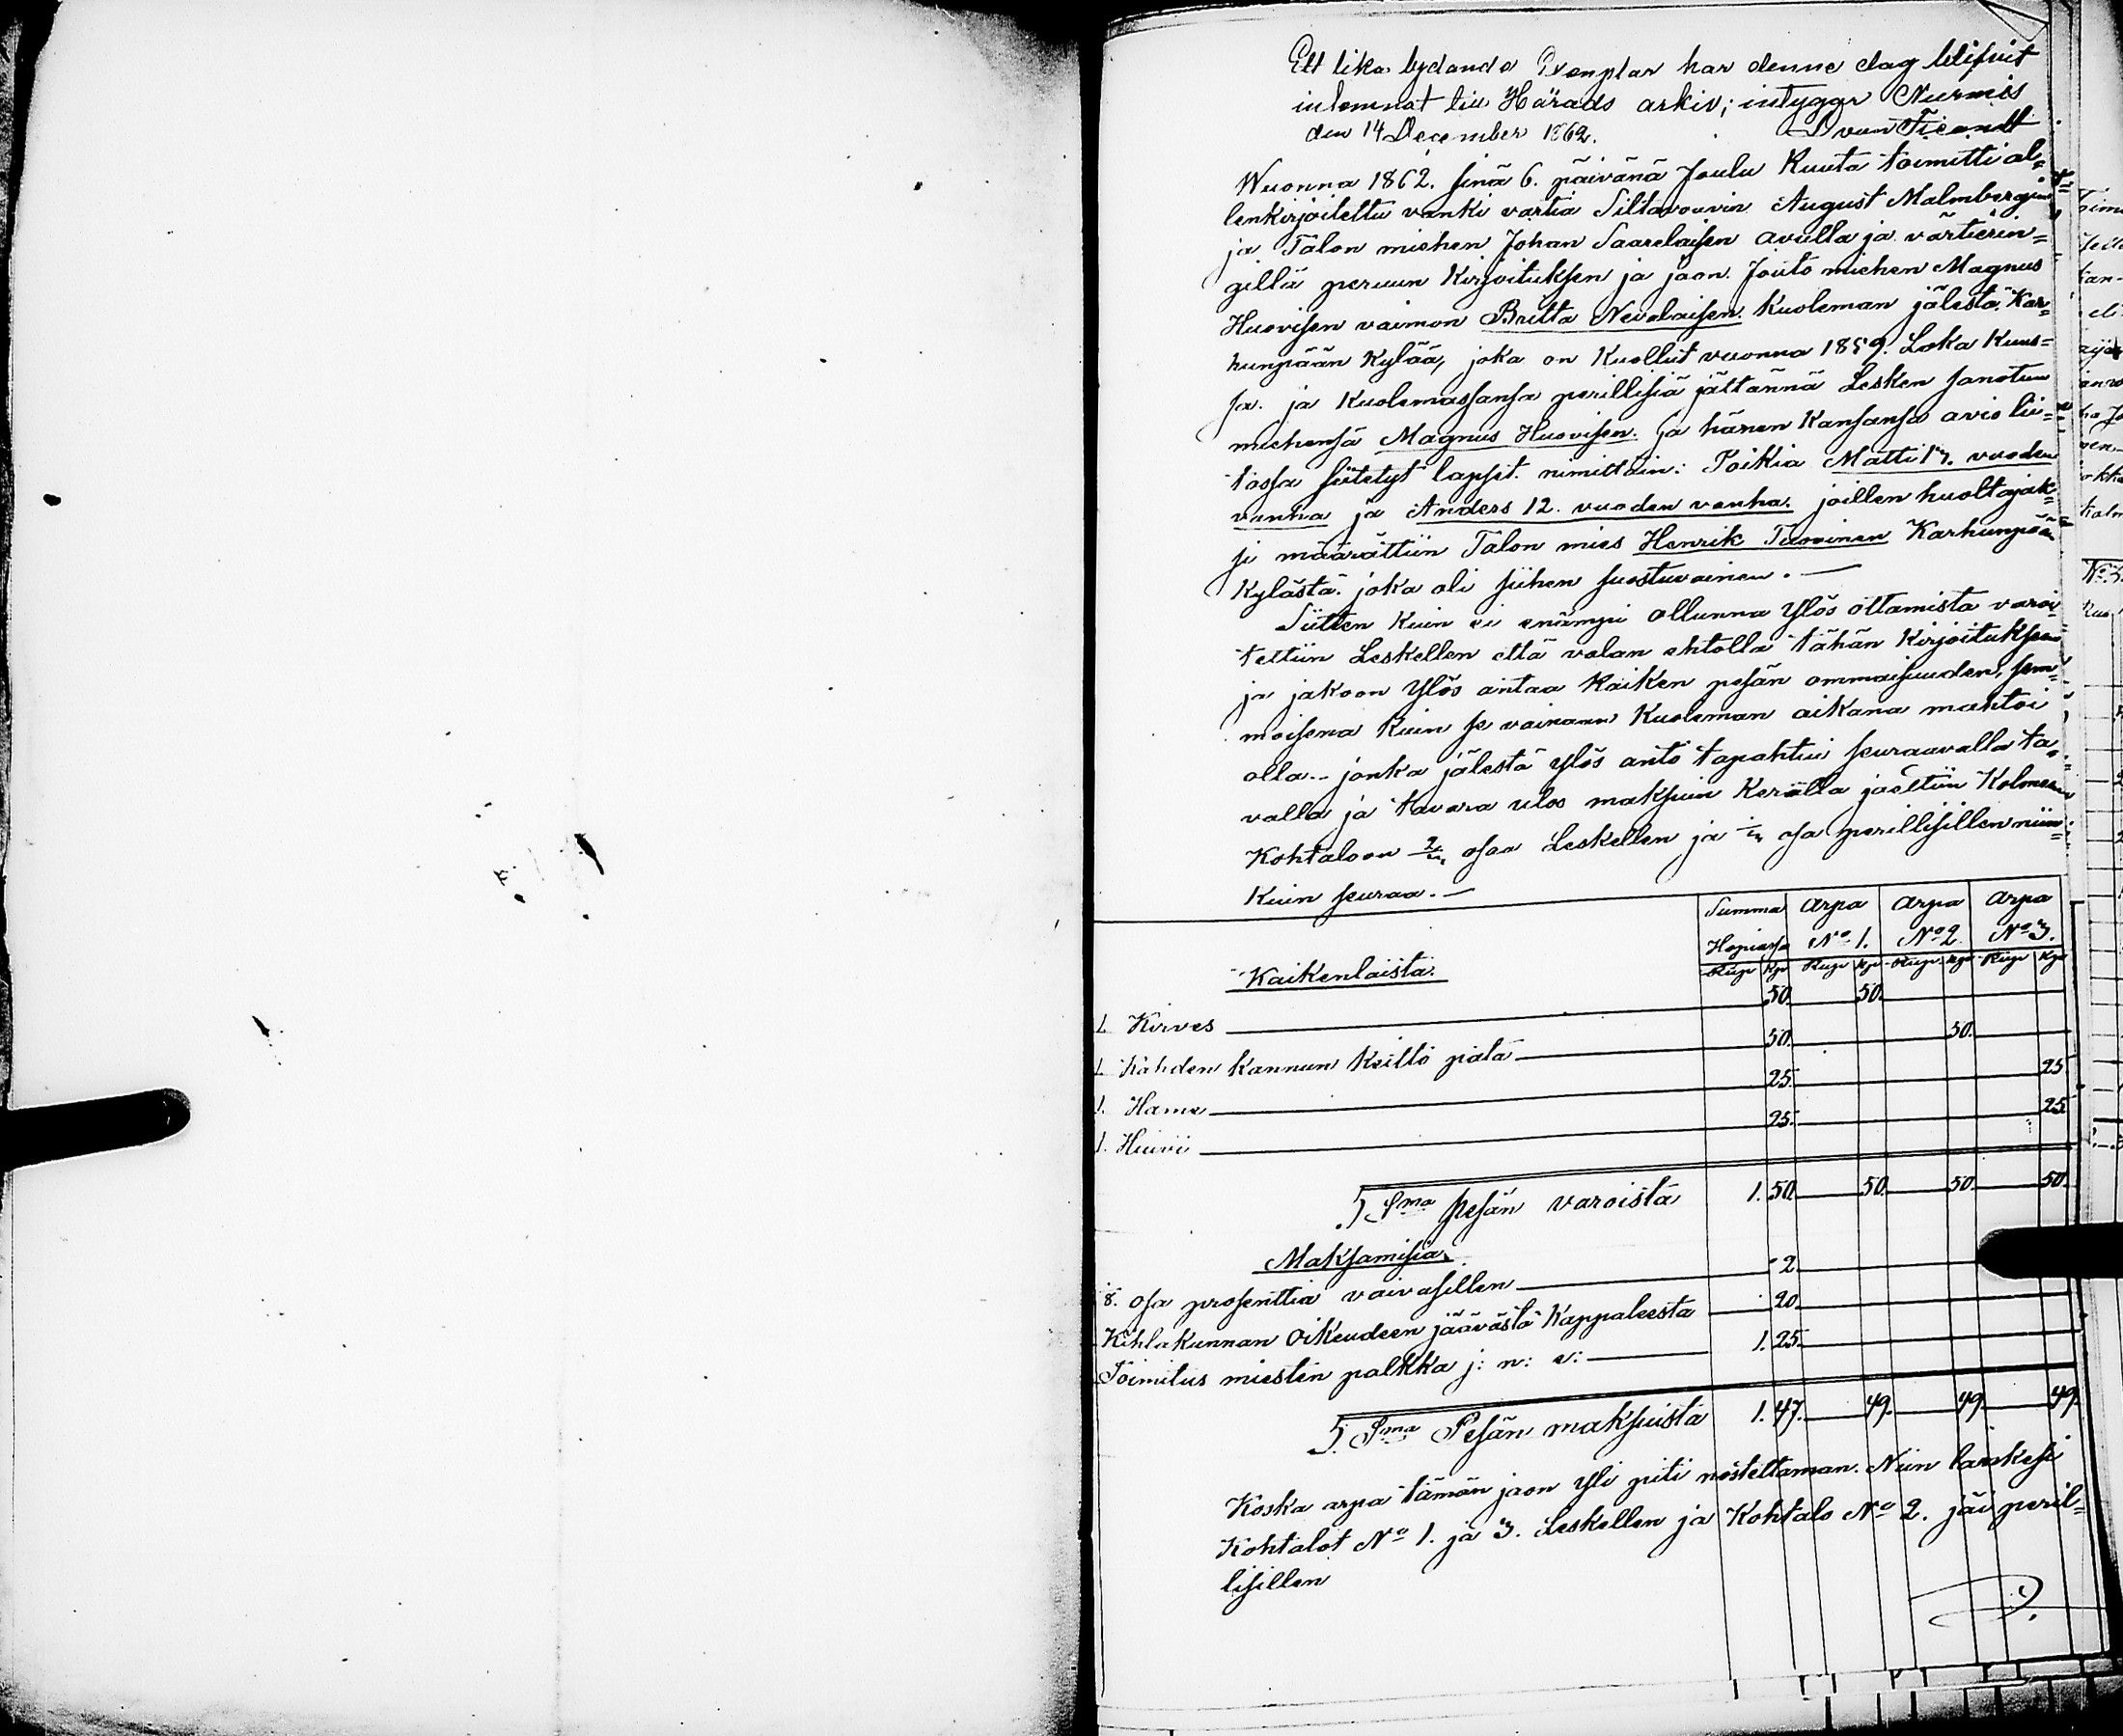 Ett lika lydande Exemplar har denne dag blifvit
inlemnat till Härads arkiv; intygar Nurmis
den 14 December 1862. von Fieandt
Wuonna 1862. sinä 6. päivänä Joulu Kuuta toimitti al=
lenkirjoitettu vanki vartia Siltavouvin August Malmbergin
ja Talon miehen Johan Saarelaisen avulla ja värtierin=
gillä peruun Kirjoituksen ja jaon. Jouto miehen Magnus
Huovisen vaimon Britta Nevalaisen. Kuoleman jälestä. Kar=
hunpään Kylää, joka on Kuollut vuonna 1859. Loka Kuus=
sa. ja Kuolemassansa perillisiä jättännä Lesken sanotun
miehensä Magnus Huovisen. ja hänen Kansansa avio lii=
tossa siitetyt lapset. nimittäin: Poikia Matti 17. vuoden
vanha ja Anders 12. vuoden vanha. joillen huoltajak=
si määrättiin Talon mies Henrik Tuovinen Karhunpään
Kylästä. joka oli siihen suostuvainen. —
Siitten Kuin ei enämpi ollunna Ylös ottamista varoi=
tettiin Leskellen että valan ehtolla tähän Kirjoituksen
ja jakoon Ylös antaa Kaiken pesän ommaisuuden, sem=
moisena Kuin se vainaan Kuoleman aikana mahtoi
olla.– jonka jälestä ylös anto tapahtui seuraavalla ta=
valla ja tavara ulos maksuin Kerälla jaettiin Kolmeen
Kohtaloon 2/3 osaa Leskellen ja 1/3 osa perillisillen niin=
Kuin seuraa. —
Summa Arpa Arpa Arpa
Hopiassa No 1. No 2 No 3.
Kaikenlaista. Rup Kp Rup Kp Rup Kp Rup Kp
1. Kirves 50. 50.
1. Kahden Kannun Keitto pata 50. 50.
1. Hame 25. 25
1. Huivi 25. 25
Sma pesän varoista 1. 50. 50. 50. 50.
Maksamisia.
8. osa prosenttia vaivasillen 2.
Kihlakunnan Oikeudeen jäävästä Kappaleesta 20.
Toimitus miesten palkka j: n: e: 1. 25.
S. Sma Pesän maksuista 1. 47. 49. 49. 49.
Koska arpa tämän jaon Yli piti nostettaman. Niin lankesi
Kohtalot No 1. ja 3. Leskellen ja Kohtalo No 2. jäi peril=
lisillen